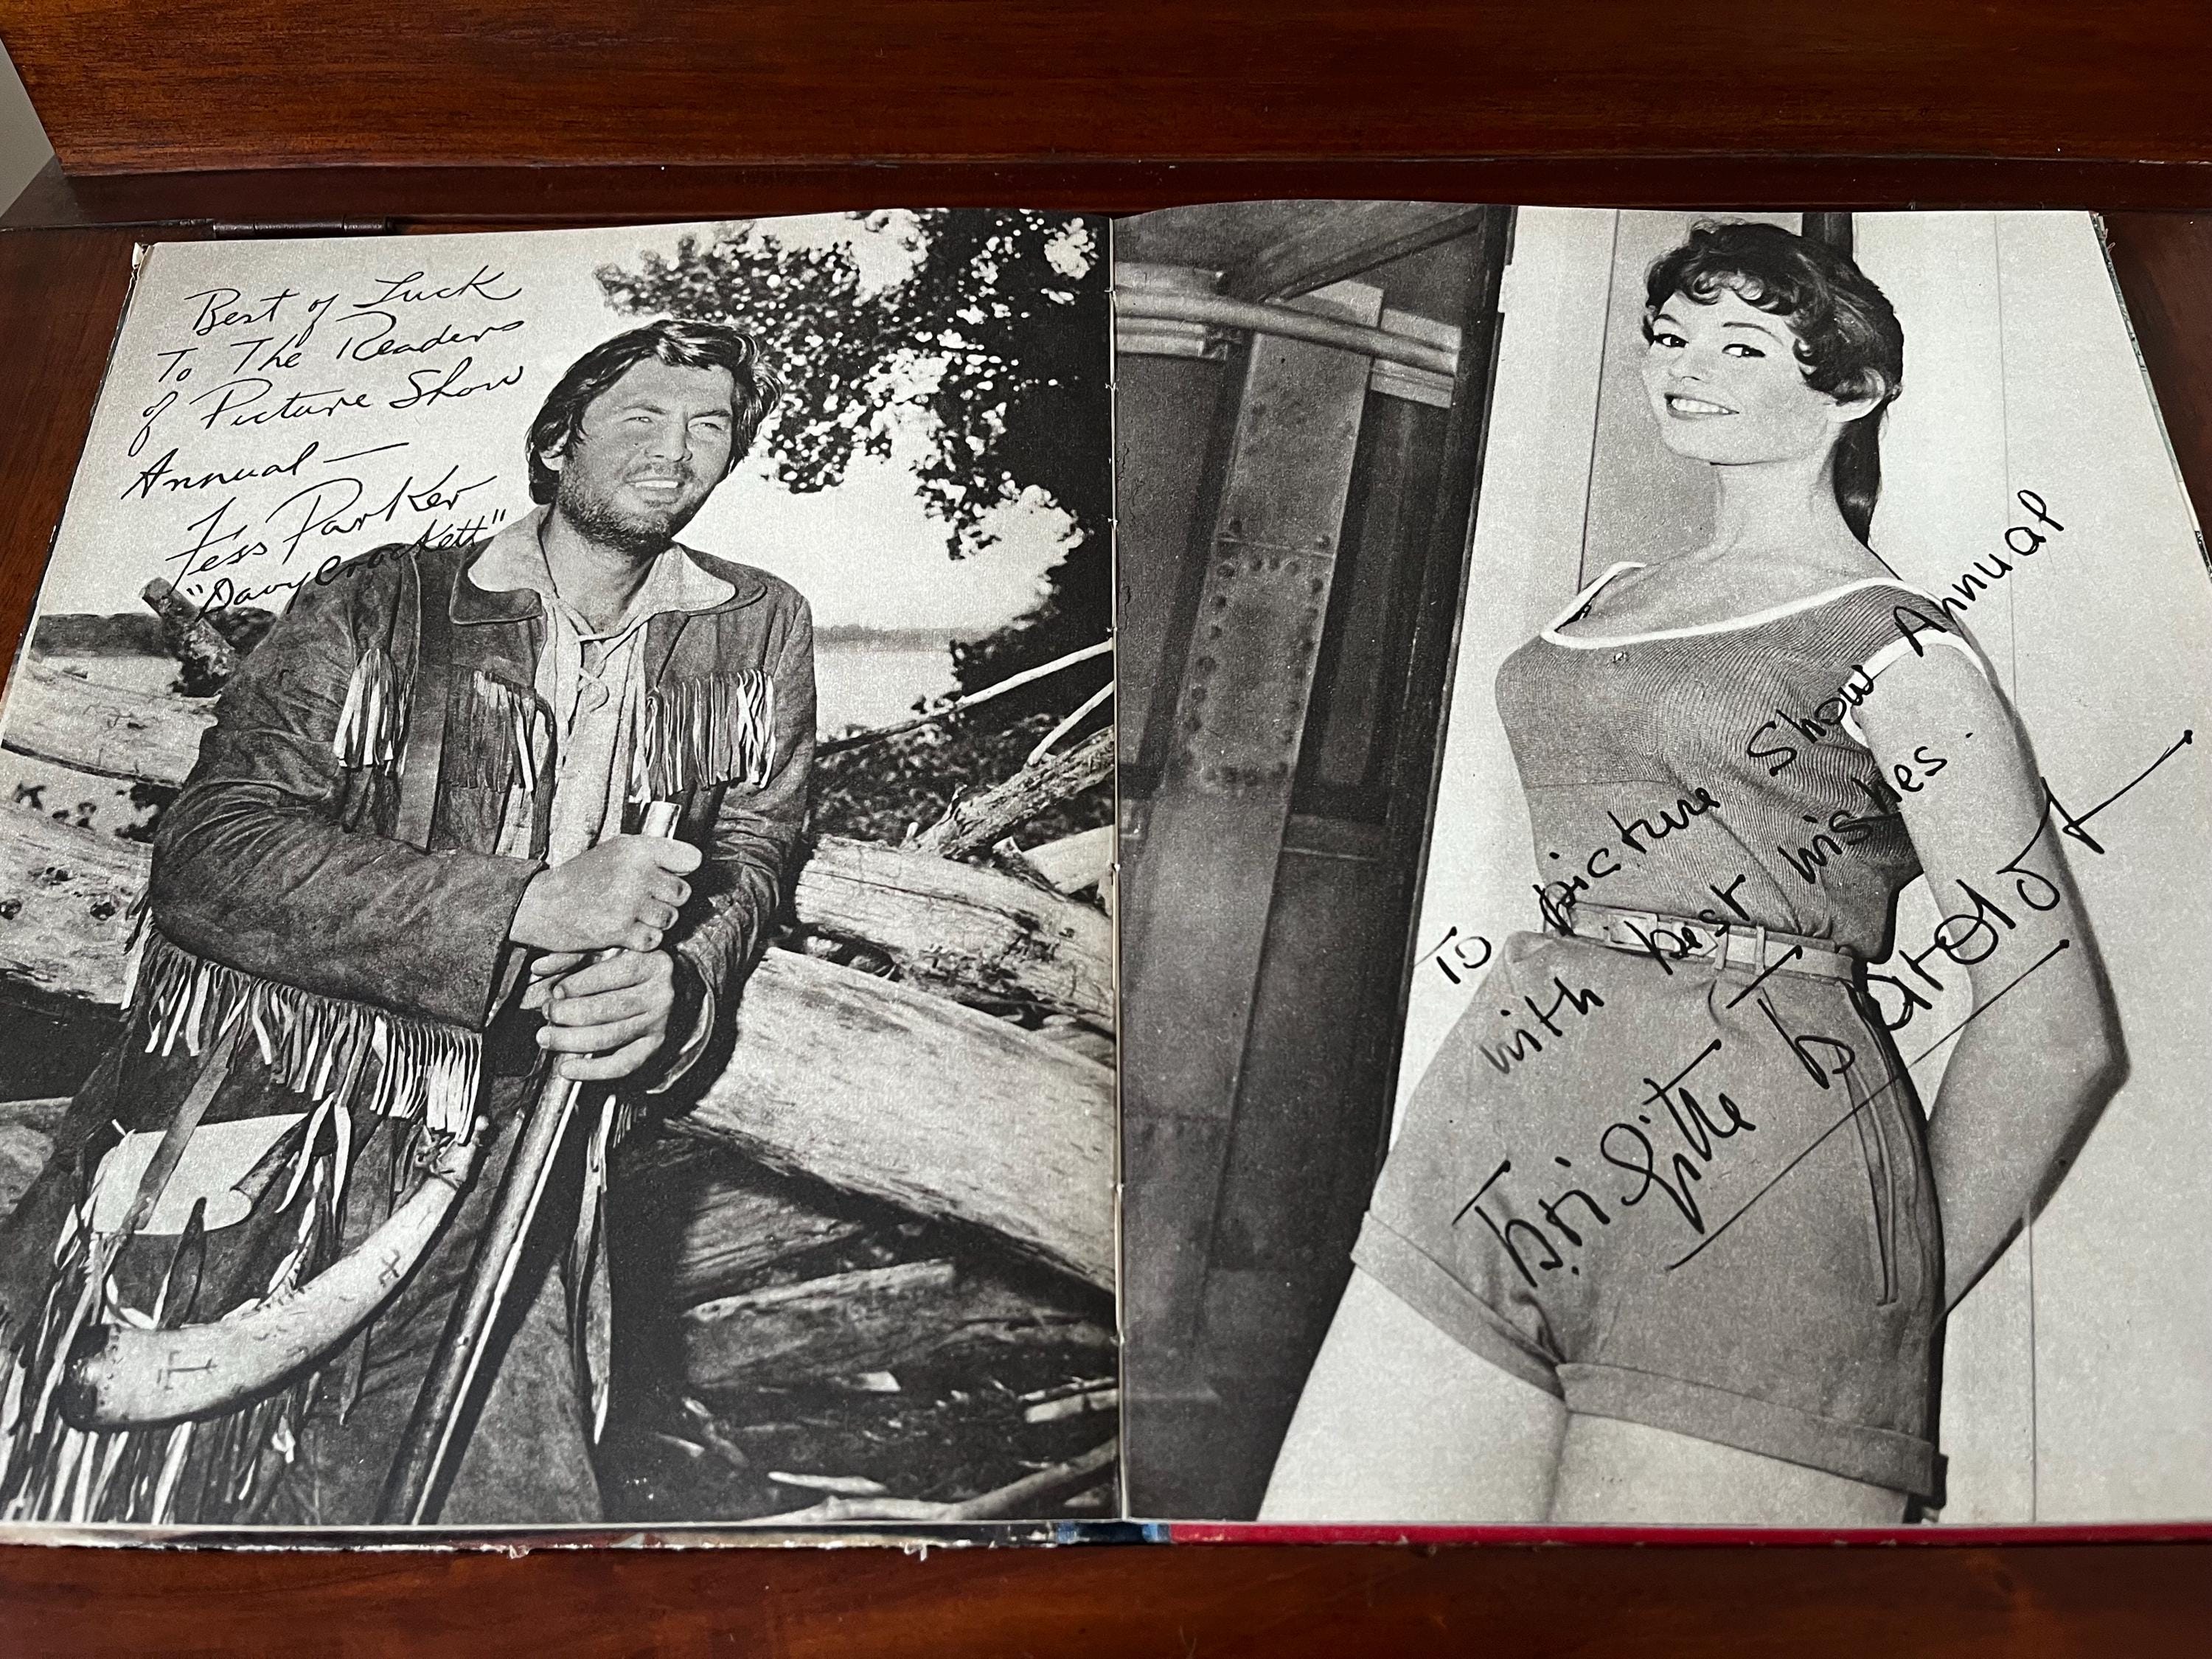 Best of Luck
To The Readers
of Picture Show
Annual —
Fess Parker
"Davy Crockett"
To picture Show Annual
with best wishes.
Brigitte Bardot